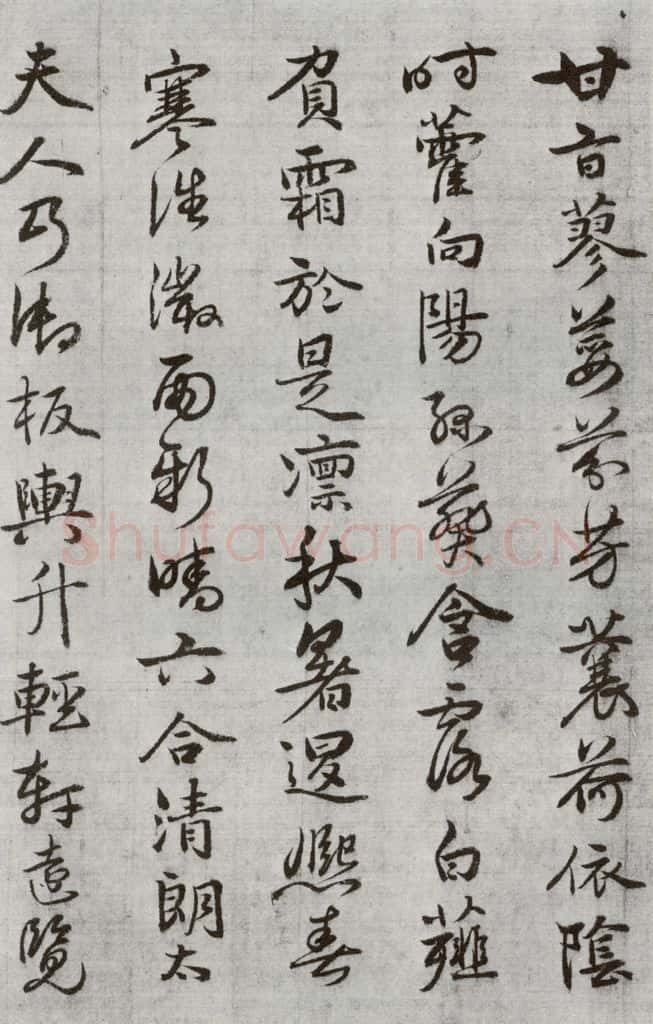 甘旨蓼荽芬芳蘘荷依陰
時藿向陽綠葵含露白薤
負霜於是凛秋暑退熙春
寒往微雨新晴六合清朗太
夫人乃御板輿升輕軒遠覽
Shufawang.CN